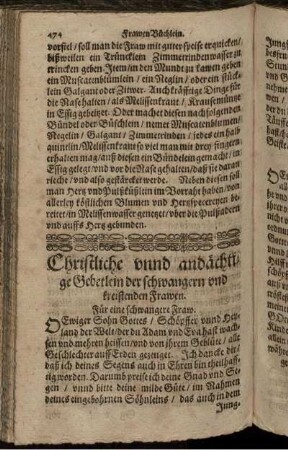 474 Frawen Büchlein.
vorfiel / soll man die Fraw mit guter speise erquicken /
bißweilen ein Trüncklein Zimmerrindenwasser zu
trincken geben Item / in den Mundt zu kawen geben
ein Muscatenblümlein / ein Neglin / oder ein stück-
lein Galgant oder Zitwer. Auch kräfftige Dinge für
die Nase halten / als Melissenkraut / Krausemüntze
in Essig gebeitzet. Oder machet diesen nachfolgenden
Bündel oder Büschlein / nemet Muscatenblumen /
Negelin / Galgant / Zimmetrinden / jedes ein halb
quintlin / Melissenkraut so viel man mit dreyen fingern
erhalten mag / auß diesen ein Bündelein gemacht / in
Essig gelegt / vnd vor die Nase gehalten / daß sie daran
rieche / vnd also gestärcket werde. Neben diesen soll
man Hertz vnd Pulßküßlin im Vorraht haben / von
allerley köstlichen Blumen vnd Hertzspecereyen be-
reitet / in Melissenwasser genetzet / vber die Pulßadern
vnd auffs Hertz gebunden.
Christliche vnnd andächti-
ge Gebetlein der schwangern vnd
kreistenden Frawen.
Für eine schwangere Fraw.
O Ewiger Sohn Gottes / Schöpffer vnd Hey-
land der Welt / der du Adam vnd Eva hast wach-
sen vnd mehren heissen / vnd von jhrem Geblüte / alle
Geschlechter auff Erden gezeuget. Ich dancke dir /
daß ich deines Segens auch in Ehren bin theilhaff-
tig worden. Darumb preise ich deine Gnad vnd Se-
gen / vnnd bitte deine milde Güte / im Nahmen
deines eingebohrnen Söhnleins / das auch in dem
Jung-